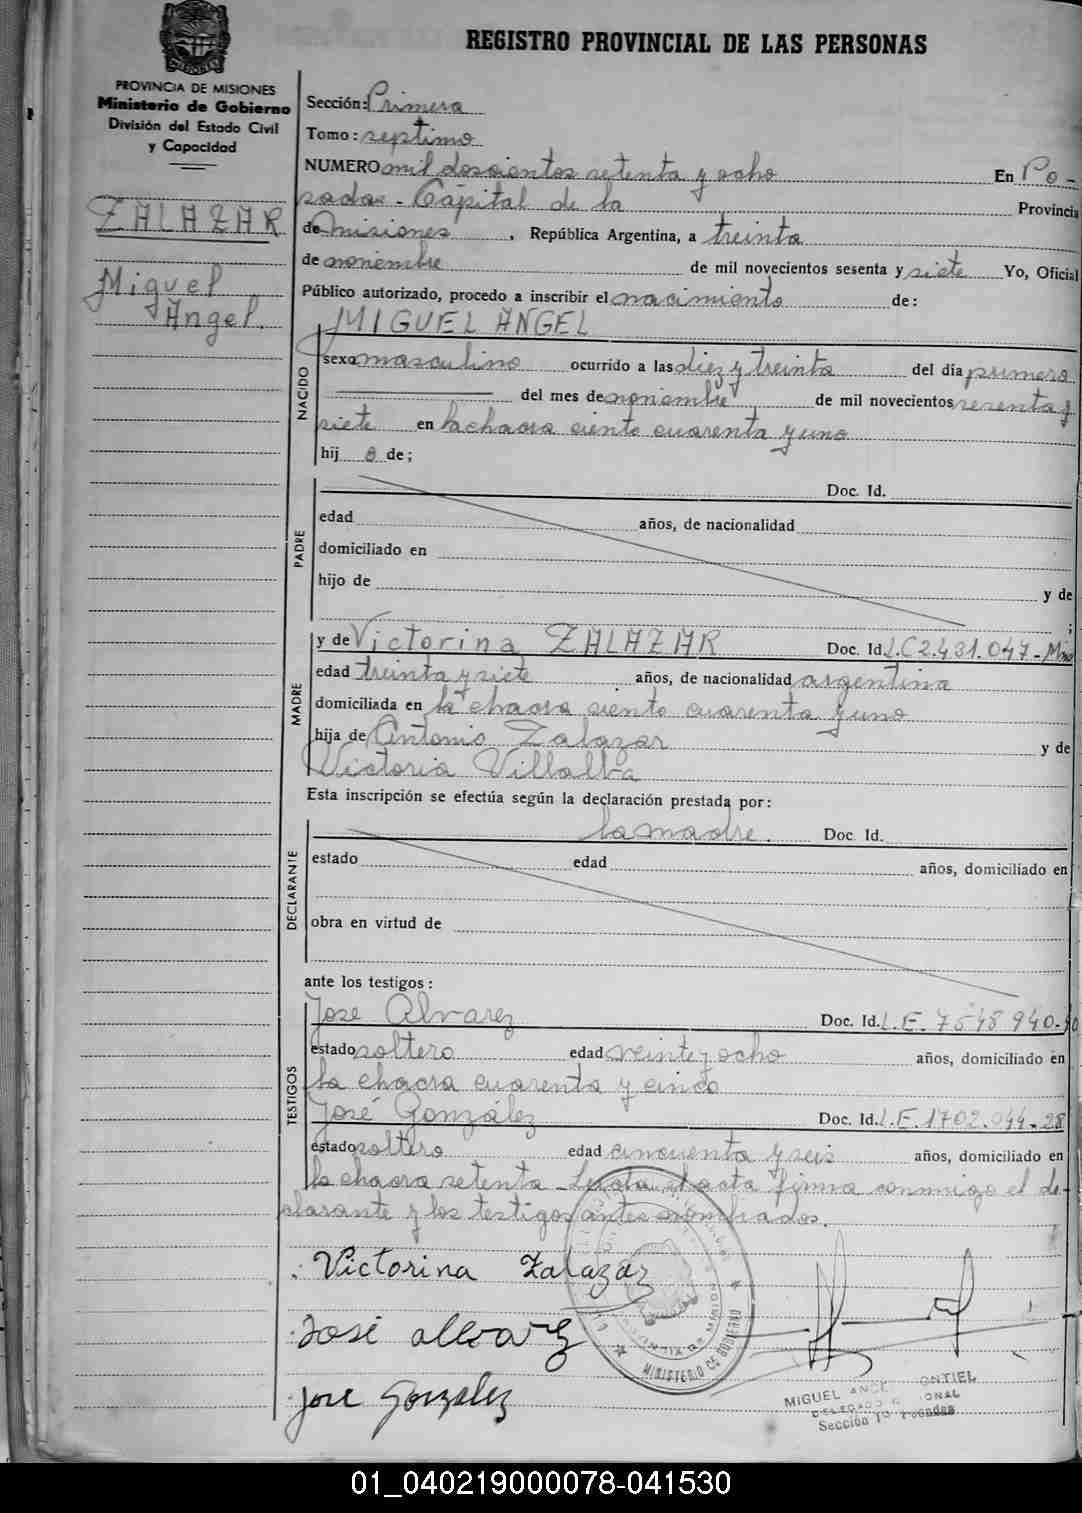 REGISTRO PROVINCIAL DE LAS PERSONAS
PROVINCIA DE MISIONES
Ministerio de Gobierno
División del Estado Civil
y Capacidad
ZALAZAR
Miguel
Angel.
Sección: Primera
Tomo: septimo
NUMERO mil doscientos setenta y ocho En Po-
sadas - Capital de la Provincia
de Misiones , República Argentina, a treinta
de noviembre de mil novecientos sesenta y siete Yo, Oficial
Público autorizado, procedo a inscribir el nacimiento de:
NACIDO
MIGUEL ANGEL
sexo masculino ocurrido a las diez y treinta del día primero
del mes de noviembre de mil novecientos sesenta y
siete en la chacra ciento cuarenta y uno
hij o de;
PADRE
Doc. Id.
edad años, de nacionalidad
domiciliado en
hijo de y de
;
MADRE
y de Victorina ZALAZAR Doc. Id. L.C 2.431.047 - Mnes
edad treinta y siete años, de nacionalidad argentina
domiciliada en la chacra ciento cuarenta y uno
hija de Antonio Zalazar y de
Victoria Villalba
Esta inscripción se efectúa según la declaración prestada por:
DECLARANTE
la madre. Doc. Id.
estado edad años, domiciliado en
obra en virtud de
ante los testigos:
TESTIGOS
José Alvarez Doc. Id. L.E. 7548 940-
estado soltero edad veinte y ocho años, domiciliado en
la chacra cuarenta y cinco
José González Doc. Id. L.E. 1702.044-28
estado soltero edad cincuenta y seis años, domiciliado en
la chacra setenta - Leida el acta firma conmigo el de-
clarante y los testigos antes nombrados.
Victorina Zalazar
José alvarez
jose Gonzalez
MINISTERIO DE GOBIERNO
MIGUEL
Sección 1a Posadas
01_040219000078-041530